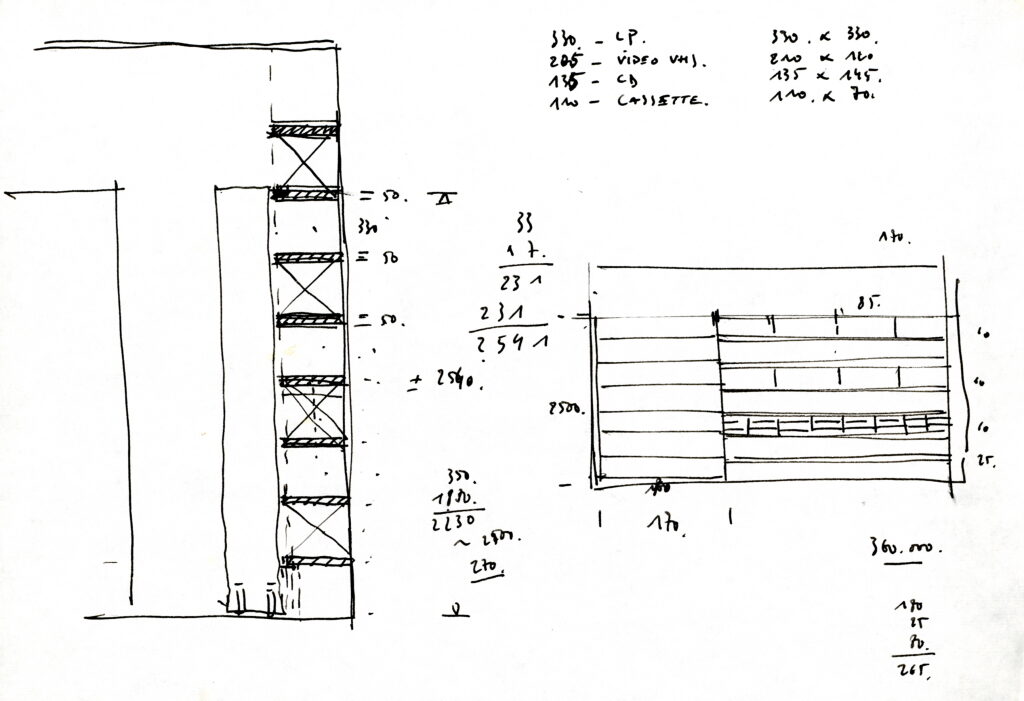 330. - LP.
205 - VIDEO VHS.
135 - CD
110 - CASSETTE.
330 . x 330.
210 x 120
135 x 145.
110 . x 70.
= 50.
330
= 50
= 50.
± 2540.
33
17.
231
231
2541
350.
1880.
2230
~ 2500.
270.
0
170.
85.
10
10
10
25.
2500.
170.
360.000.
180
25
80.
265.